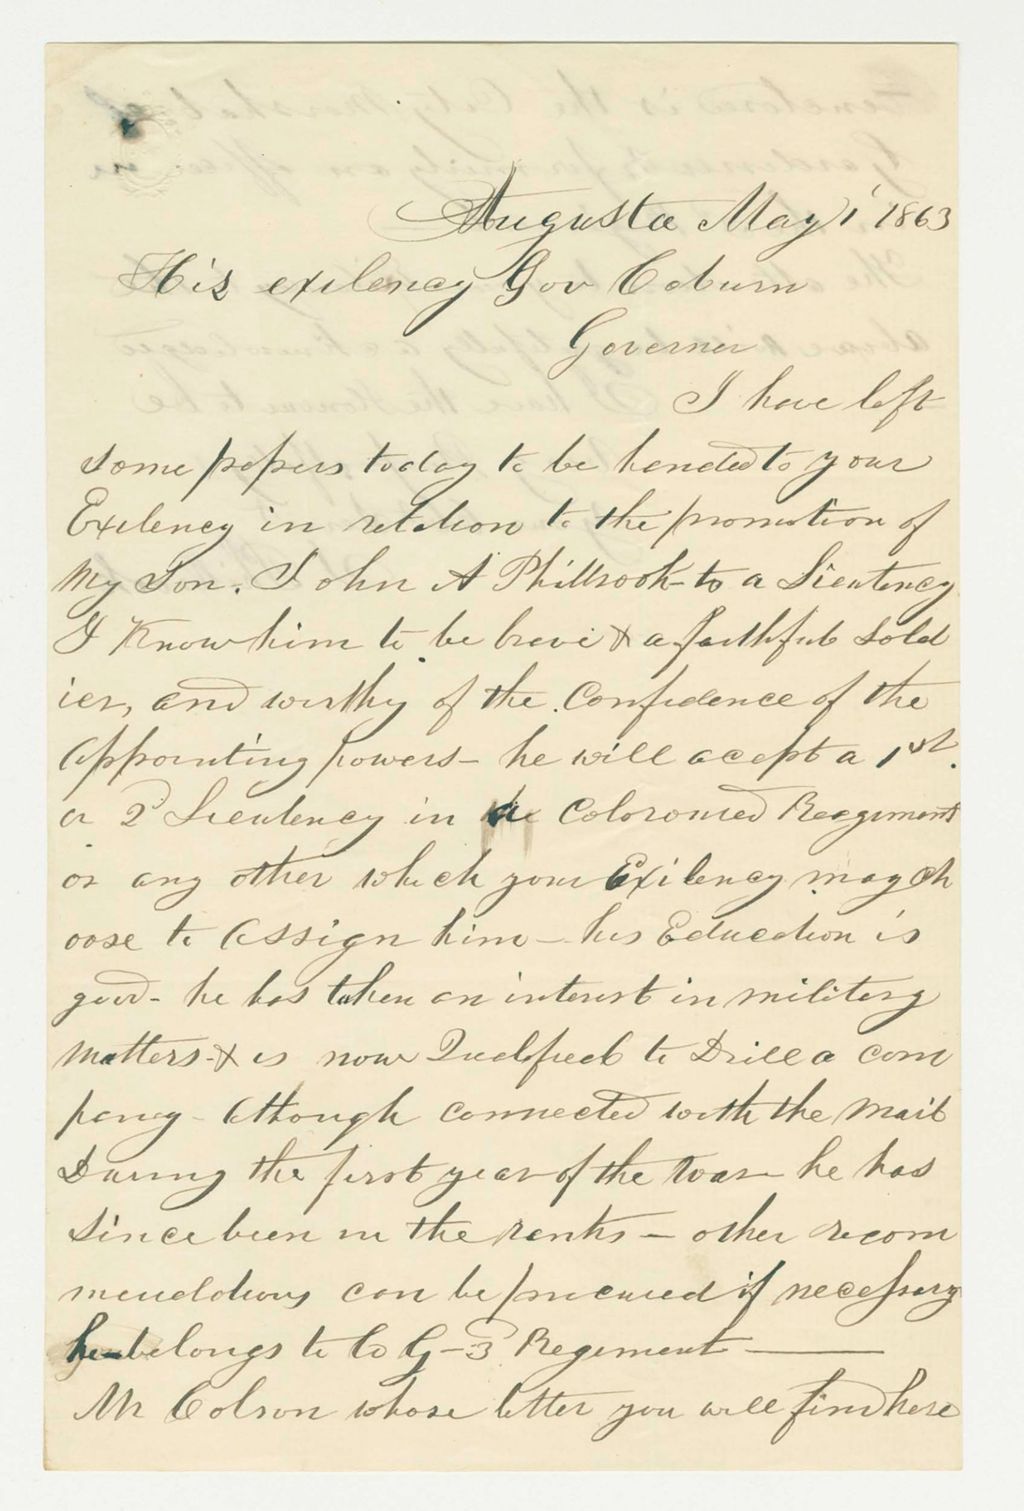 Augusta May 1' 1863
His exilency Gov Coburn
Governer
I have left
some papers today to be handed to your
Exilency in relation to the promotion of
My Son. John A Philbrook to a Lieutency
I Know him to be brave & a faithful Sold
ier, and worthy of the Confidence of the
Appointing powers - he will acept a 1st.
or 2d Lieutency in the Coloroured Reegiment
or any other which your Exilency may ch
oose to Assign him - his Education is
good - he has taken an interest in military
matters - & is now Qualified to Drill a com
pany - Although connected with the mail
During the first year of the War - he has
Since been in the ranks - other recom
mendations can be procured if necessary
he belongs to Co G - 3d Regiment
Mr Colson whose letter you will find here